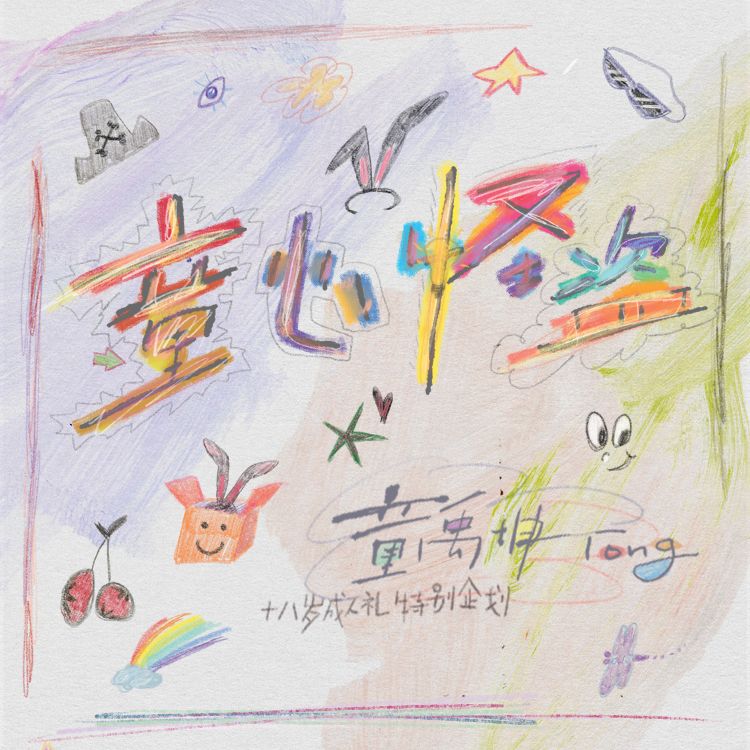 童心怪盗
童禹坤 Tong
十八岁成人礼特别企划